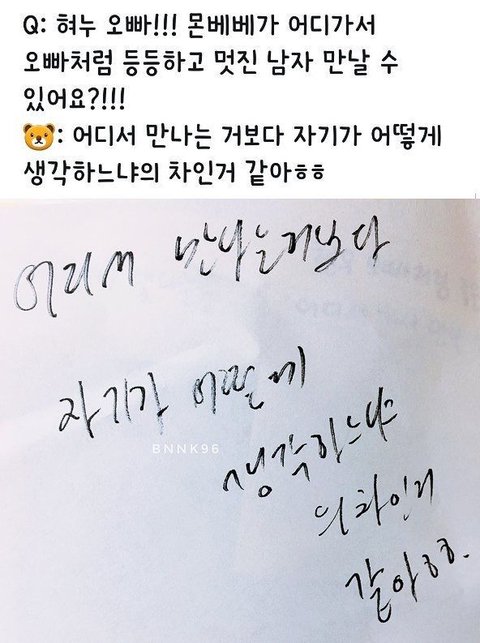 Q: 혀누 오빠!!! 몬베베가 어디가서
오빠처럼 등등하고 멋진 남자 만날 수
있어요?!!!
🐻: 어디서 만나는 거보다 자기가 어떻게
생각하느냐의 차인거 같아ㅎㅎ
어디서 만나는거보다
자기가 어떻게
BNNK96
생각하느냐
의 차인거
같아ㅎㅎ.